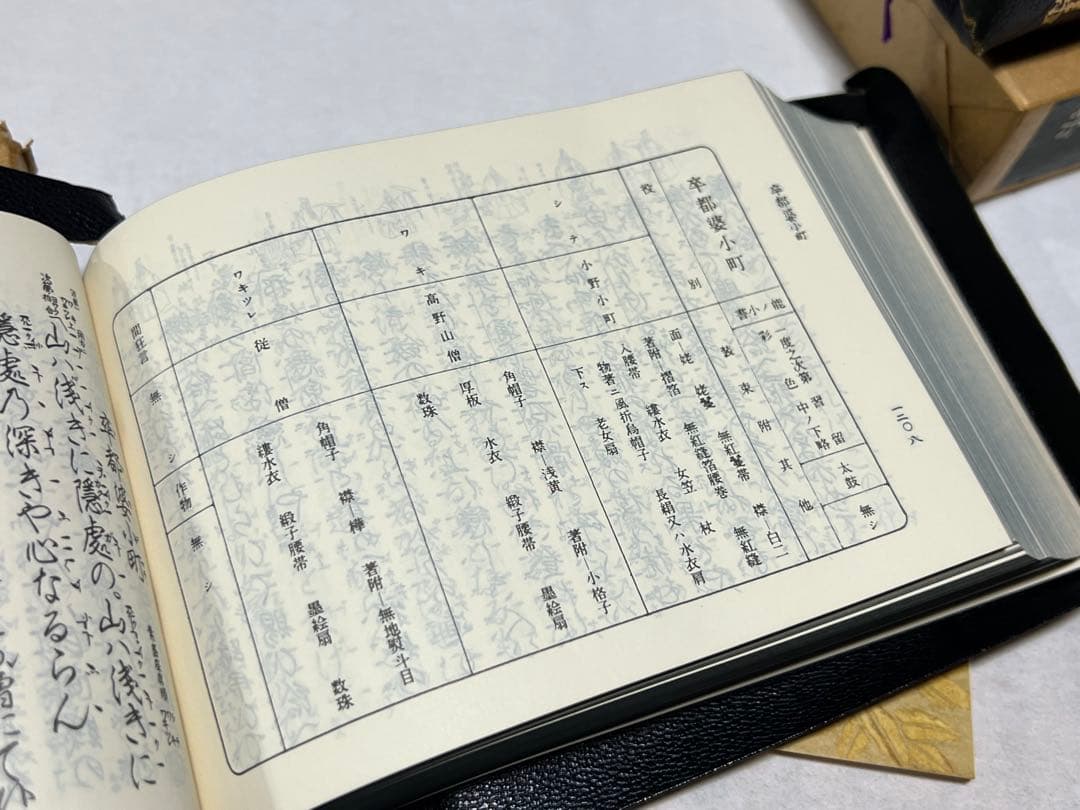 卒都婆小町
一二〇八
卒都婆小町
能ノ小書
一度之次第
習留
中ノ下略
太鼓
無シ
役別
彩色
装束附其他
シテ
小野小町
面 姥 姥鬘 無紅鬘帯 襟―白二
著附―摺箔 無紅縫箔腰巻 無紅縫
入腰帯 縷水衣 女笠 杖
物著ニ風折烏帽子 長絹又ハ水衣肩
下ス 老女扇
ワキ
高野山僧
角帽子 襟―浅黄 著附―小格子
厚板 水衣 緞子腰帯 墨絵扇
数珠
ワキツレ
従僧
角帽子 襟―樺 著附―無地熨斗目
縷水衣 緞子腰帯 墨絵扇 数珠
間狂言
無シ
作物
無シ
卒都婆小町
山ハ浅きに隠處の。山ハ浅きに
隠處乃深きや心なるらん